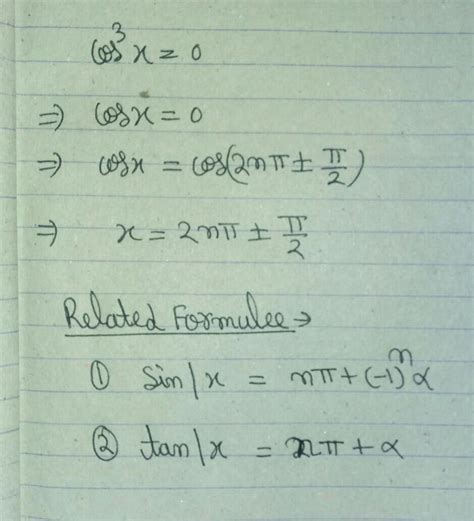 cos³x = 0
⇒ cosx = 0
⇒ cosx = cos(2nπ ± π/2)
⇒ x = 2nπ ± π/2
Related Formulee →
① sin/x = nπ + (-1)ⁿα
② tan/x = nπ + α